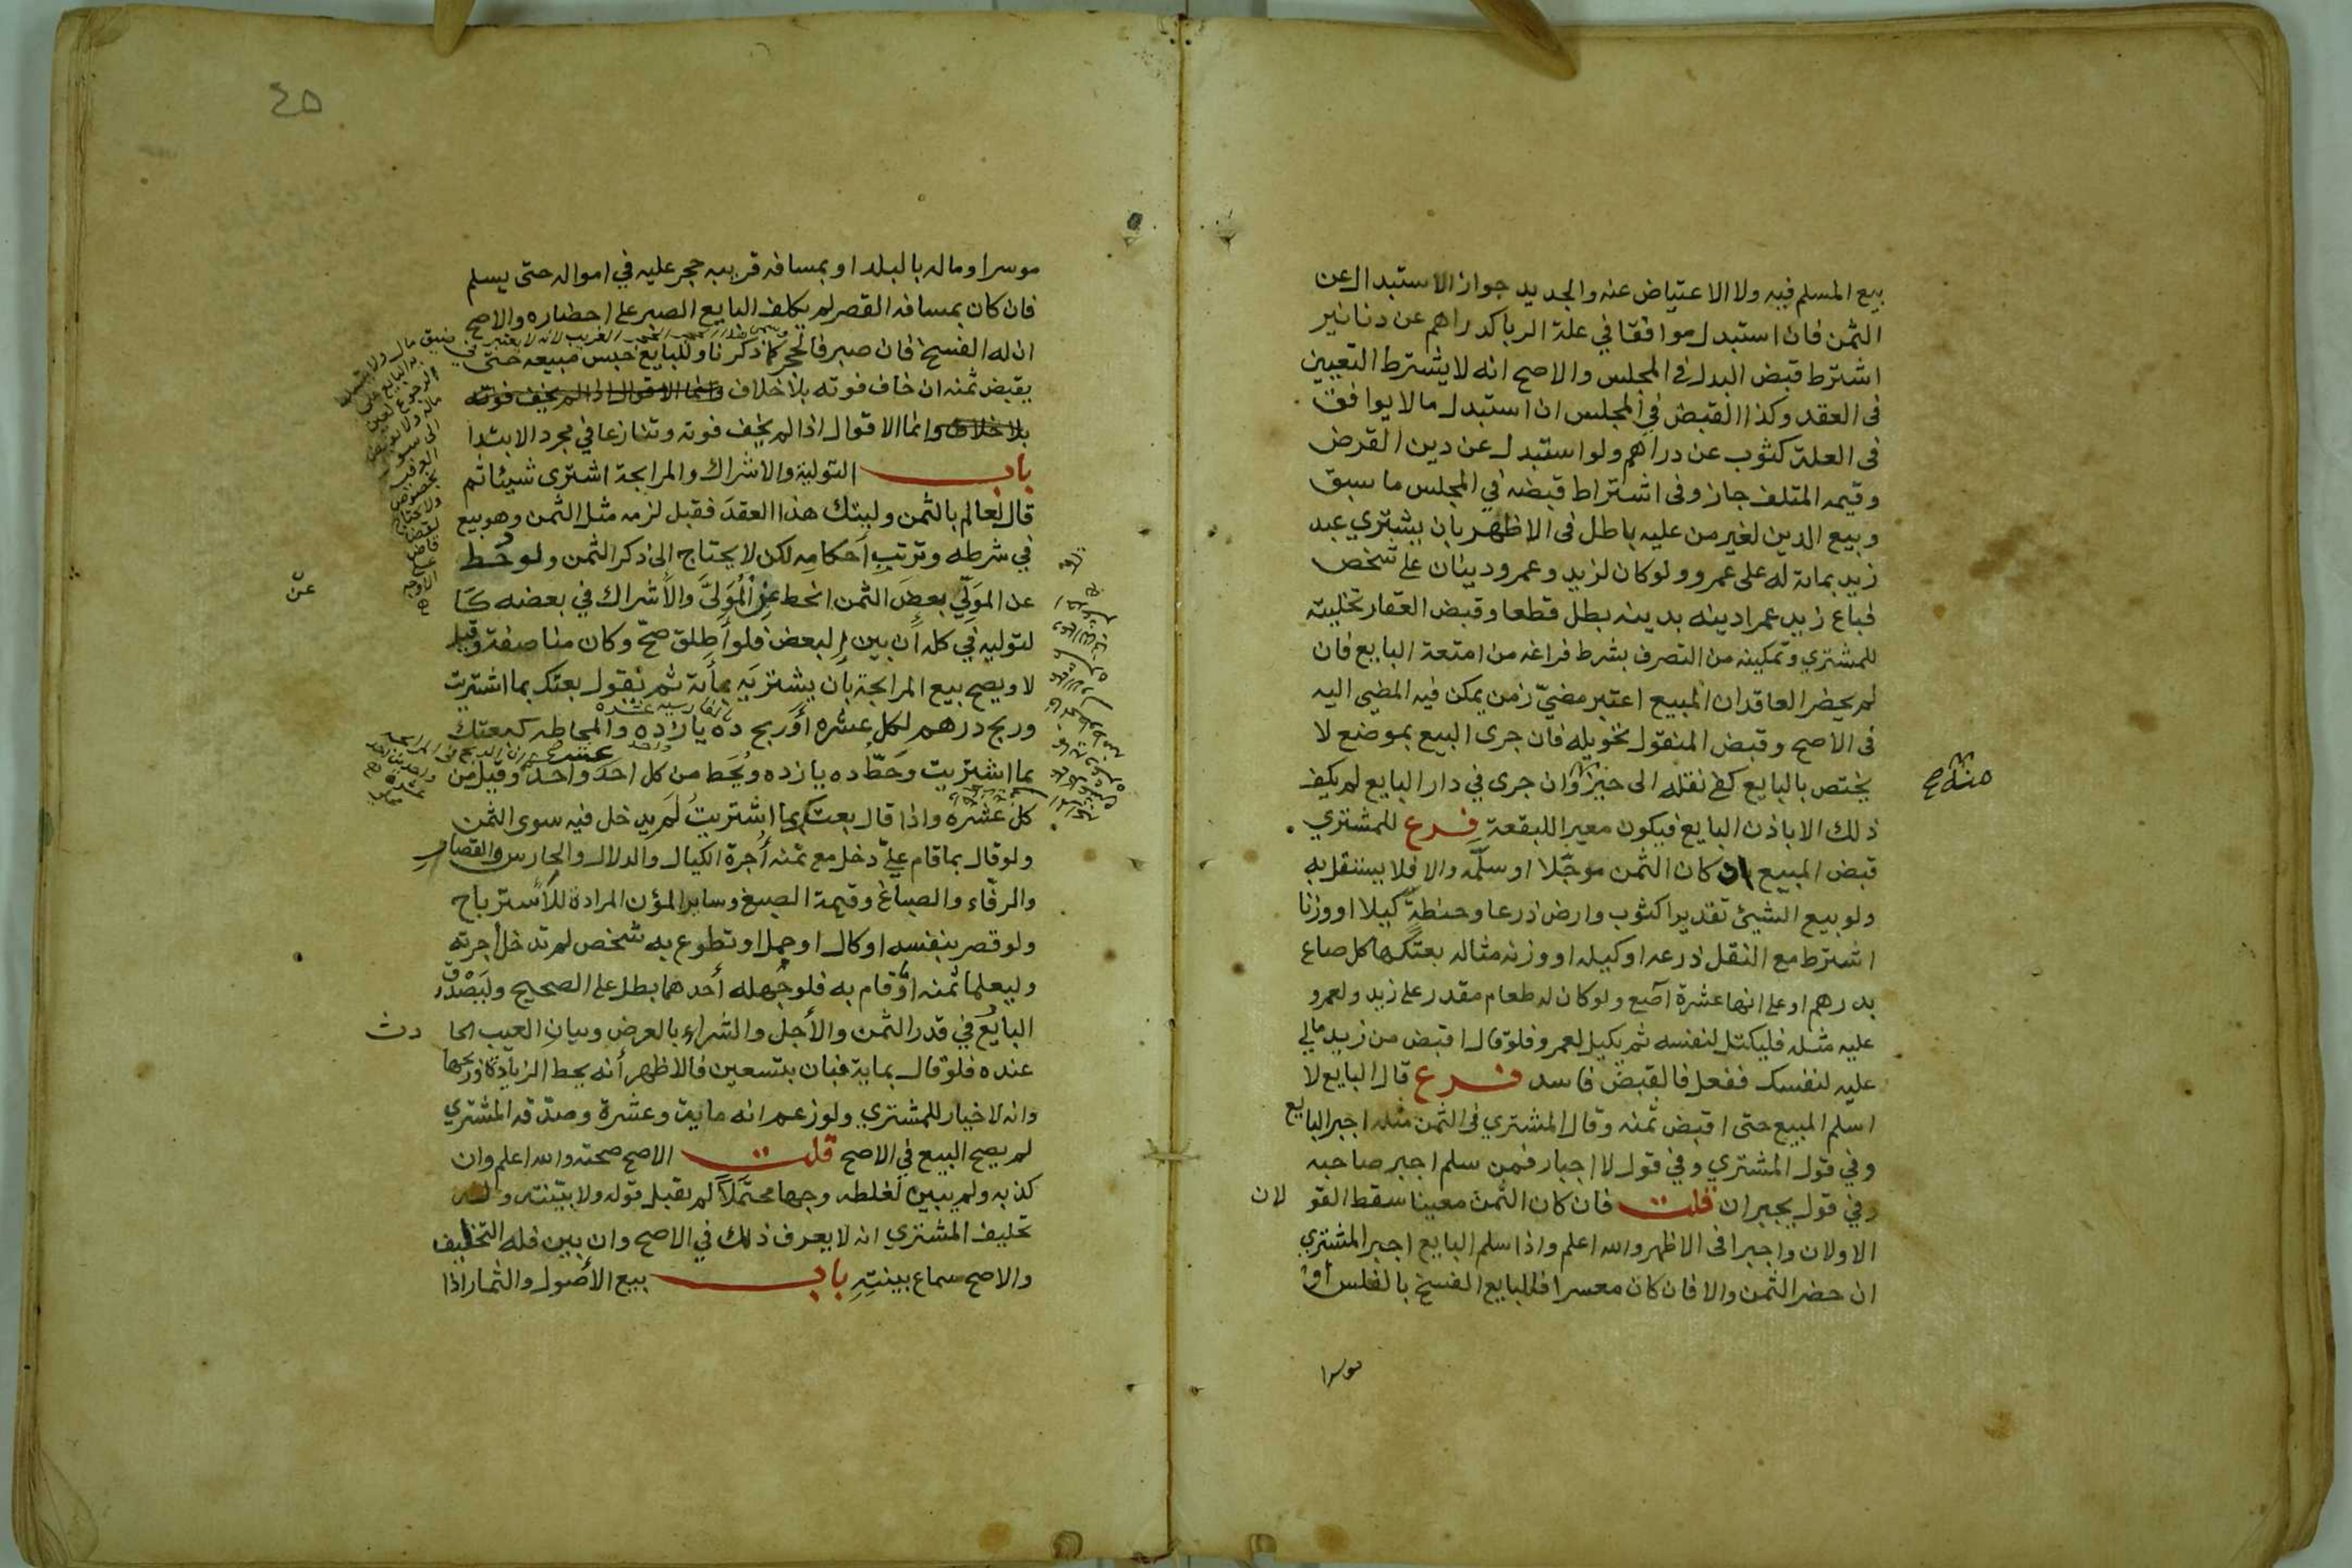 بيع المسلم فيه ولا الاعتياض عنه والجديد جواز الاستبدال عن
الثمن فان استبدل موافقا في علة الربا كدراهم عن دنانير
اشترط قبض البدل في المجلس والاصح انه لا يشترط التعيين
في العقد وكذا القبض في المجلس ان استبدل مالا يوافق
في العلة كثوب عن دراهم ولو استبدل عن دين القرض
وقيمه المتلف جاز وفي اشتراط قبضه في المجلس ما سبق
وبيع الدين لغير من عليه باطل في الاظهر بان يشتري عبد
زيد بماىة له على عمرو ولو كان لزيد وعمرو دينان على شخص
فباع زيد عمرا دينه بدينه بطل قطعا وقبض العقار تخليته
للمشتري وتمكينه من التصرف بشرط فراغه من امتعة البايع فان
لم يحضر العاقدان المبيع اعتبر مضيّ زمن يمكن فيه المضي اليه
في الاصح وقبض المنقول تحويله فان جرى البيع بموضع لا
يختص بالبايع كفى نقله الى حيز وان جرى في دار البايع لم يكف
منه صح
ذلك الا باذن البايع فيكون معيرا للبقعة فرع للمشتري
قبض المبيع ان كان الثمن موجّلا او سلّمه والا فلا يستقل به
ولو بيع الشيئ تقديرا كثوب وارض ذرعا وحنطة كيلا او وزنا
اشترط مع النقل ذرعه او كيله او وزنه مثاله بعتكها كل صاع
بدرهم او على انها عشرة آصع ولو كان له طعام مقدر على زيد ولعمرو
عليه مثله فليكتل لنفسه ثم يكيل لعمرو فلو قال اقبض من زيد مالي
عليه لنفسك ففعل فالقبض فاسد فرع قال البايع لا
اسلم المبيع حتى اقبض ثمنه وقال المشتري في الثمن مثله اجبر البايع
وفي قول المشتري وفي قول لا اجبار فمن سلم اجبر صاحبه
وفي قول يجبران قلت فان كان الثمن معينا سقط القو لان
الاولان واجبرا في الاظهر والله اعلم واذا سلم البايع اجبر المشتري
ان حضر الثمن والا فان كان معسرا فللبايع الفسخ بالفلس او
موسرا
٤٥
موسرا وماله بالبلد او بمسافه قريبه حجر عليه في امواله حتى يسلم
فان كان بمسافه القصر لم يكلف البايع الصبر على احضاره والاصح
ان له الفسخ فان صبر فالحجر كما ذكرنا وللبايع حبس مبيعه حتى
يقبض ثمنه ان خاف فوته بلا خلاف وانما الاقوال اذا لم يخف فوته
بلا خلاف وانما الاقوال اذا لم يخف فوته وتنازعا في مجرد الابتدا
باب التولية والاشراك والمرابحة اشترى شيئا ثم
قال لعالم بالثمن وليتك هذا العقد فقبل لزمه مثل الثمن وهو بيع
في شرطه وترتيب احكامه لكن لا يحتاج الى ذكر الثمن ولو حُط
عن المولّي بعض الثمن انحط عن المُوَلَّى والاشراك في بعضه كا
عن
لتوليه في كله ان بين البعض فلو أطلق صحّ وكان مناصفة وقيل
لا ويصح بيع المرابحة بان يشتريه بمأىة ثم يقول بعتك بما اشتريت
بالفارسيه عشره
وربح درهم لكل عشره أو ربح ده يازده والمحاطه كبعتك
بما اشتريت وحَطّ ده يازده ويُحَط من كل احد واحد وقيل من
عشر
كل عشره واذا قال بعت بما اشتريت لم يدخل فيه سوى الثمن
ولو قال بما قام عليّ دخل مع ثمنه أُجرة الكيال والدلال والحارس والقصار
والرفّاء والصباغ وقيمة الصبغ وساير المؤن المرادة للاسترباح
ولو قصر بنفسه او كال او حمل او تطوع به شخص لم تدخل أجرته
وليعلما ثمنه او ما قام به فلو جهله أحدهما بطل على الصحيح وليَصْدُق
البايع في قدر الثمن والأجل والشراء بالعرض وبيان العيب الحا دث
عنده فلو قال بماية فبان بتسعين فالاظهر أنه يحط الزيادة وربحها
وانه لا خيار للمشتري ولو زعم انه ماية وعشرة وصدّقه المشتري
لم يصح البيع في الاصح قلت الاصح صحته والله اعلم وان
كذبه ولم يبين لغلطه وجها محتملا لم يقبل قوله ولا بيّنته وله
تحليف المشتري انه لا يعرف ذلك في الاصح وان بين فله التحليف
والاصح سماع بينته باب بيع الأصول والثمار اذا